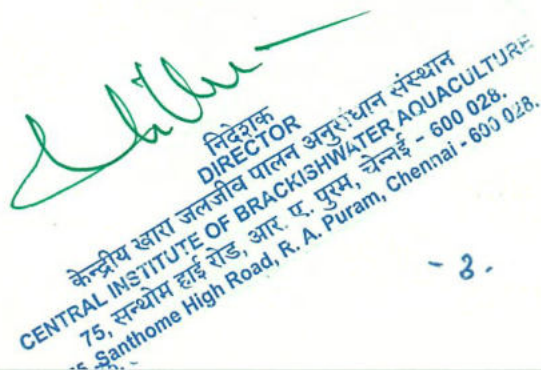 निदेशक
DIRECTOR
केन्द्रीय खारा जलजीव पालन अनुसंधान संस्थान
CENTRAL INSTITUTE OF BRACKISHWATER AQUACULTURE
75, सन्थोम हाई रोड, आर. ए. पुरम, चेन्नई - 600 028.
Santhome High Road, R. A. Puram, Chennai - 600 028.
- 3.